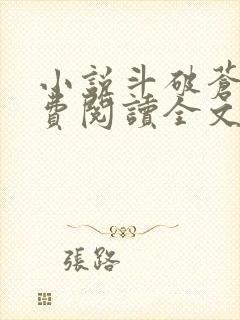 小說斗破蒼
費閱讀全文
張路